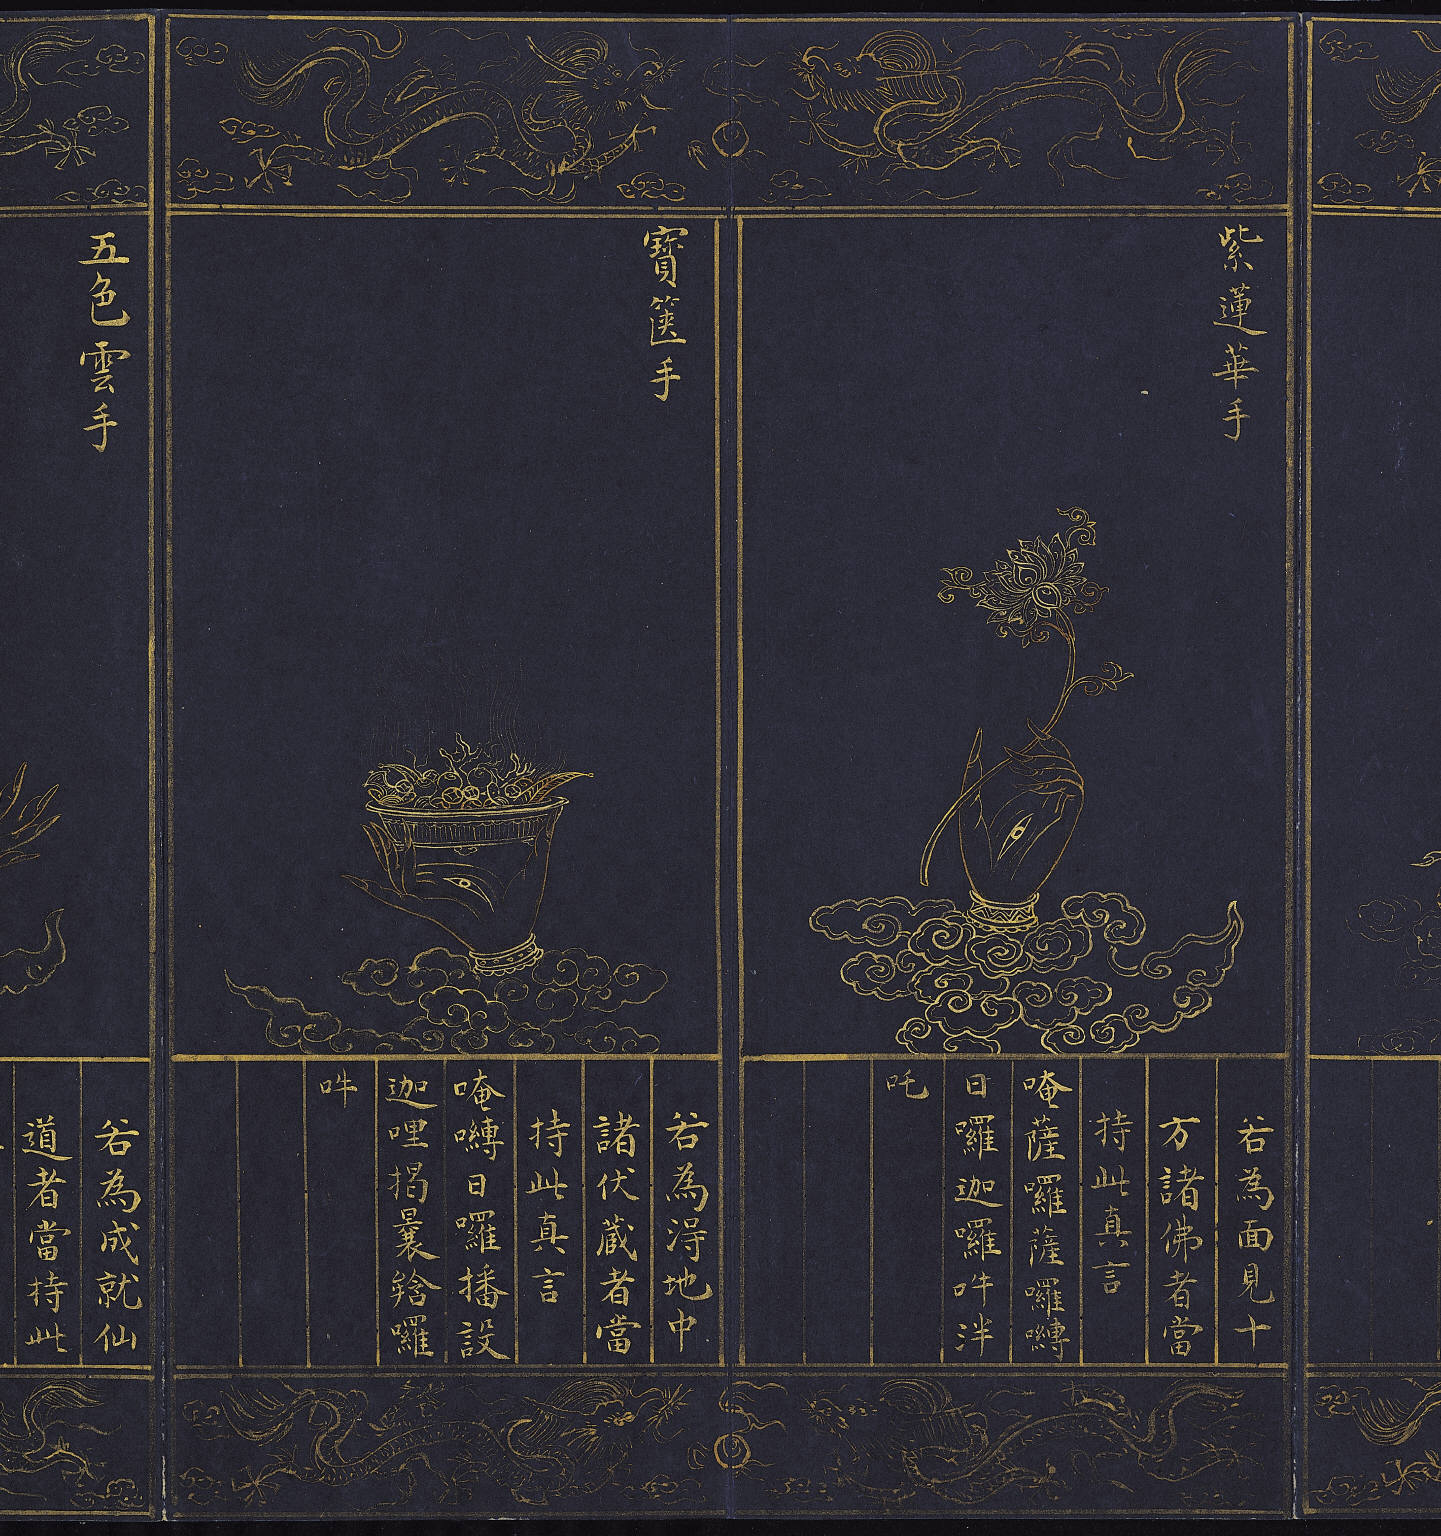 紫蓮華手
若為面見十
方諸佛者當
持此真言
唵薩囉薩囉嚩
日囉迦囉吽泮
吒
寶篋手
若為得地中
諸伏藏者當
持此真言
唵嚩日囉播設
迦哩揭曩𤚥囉
吽
五色雲手
若為成就仙
道者當持此